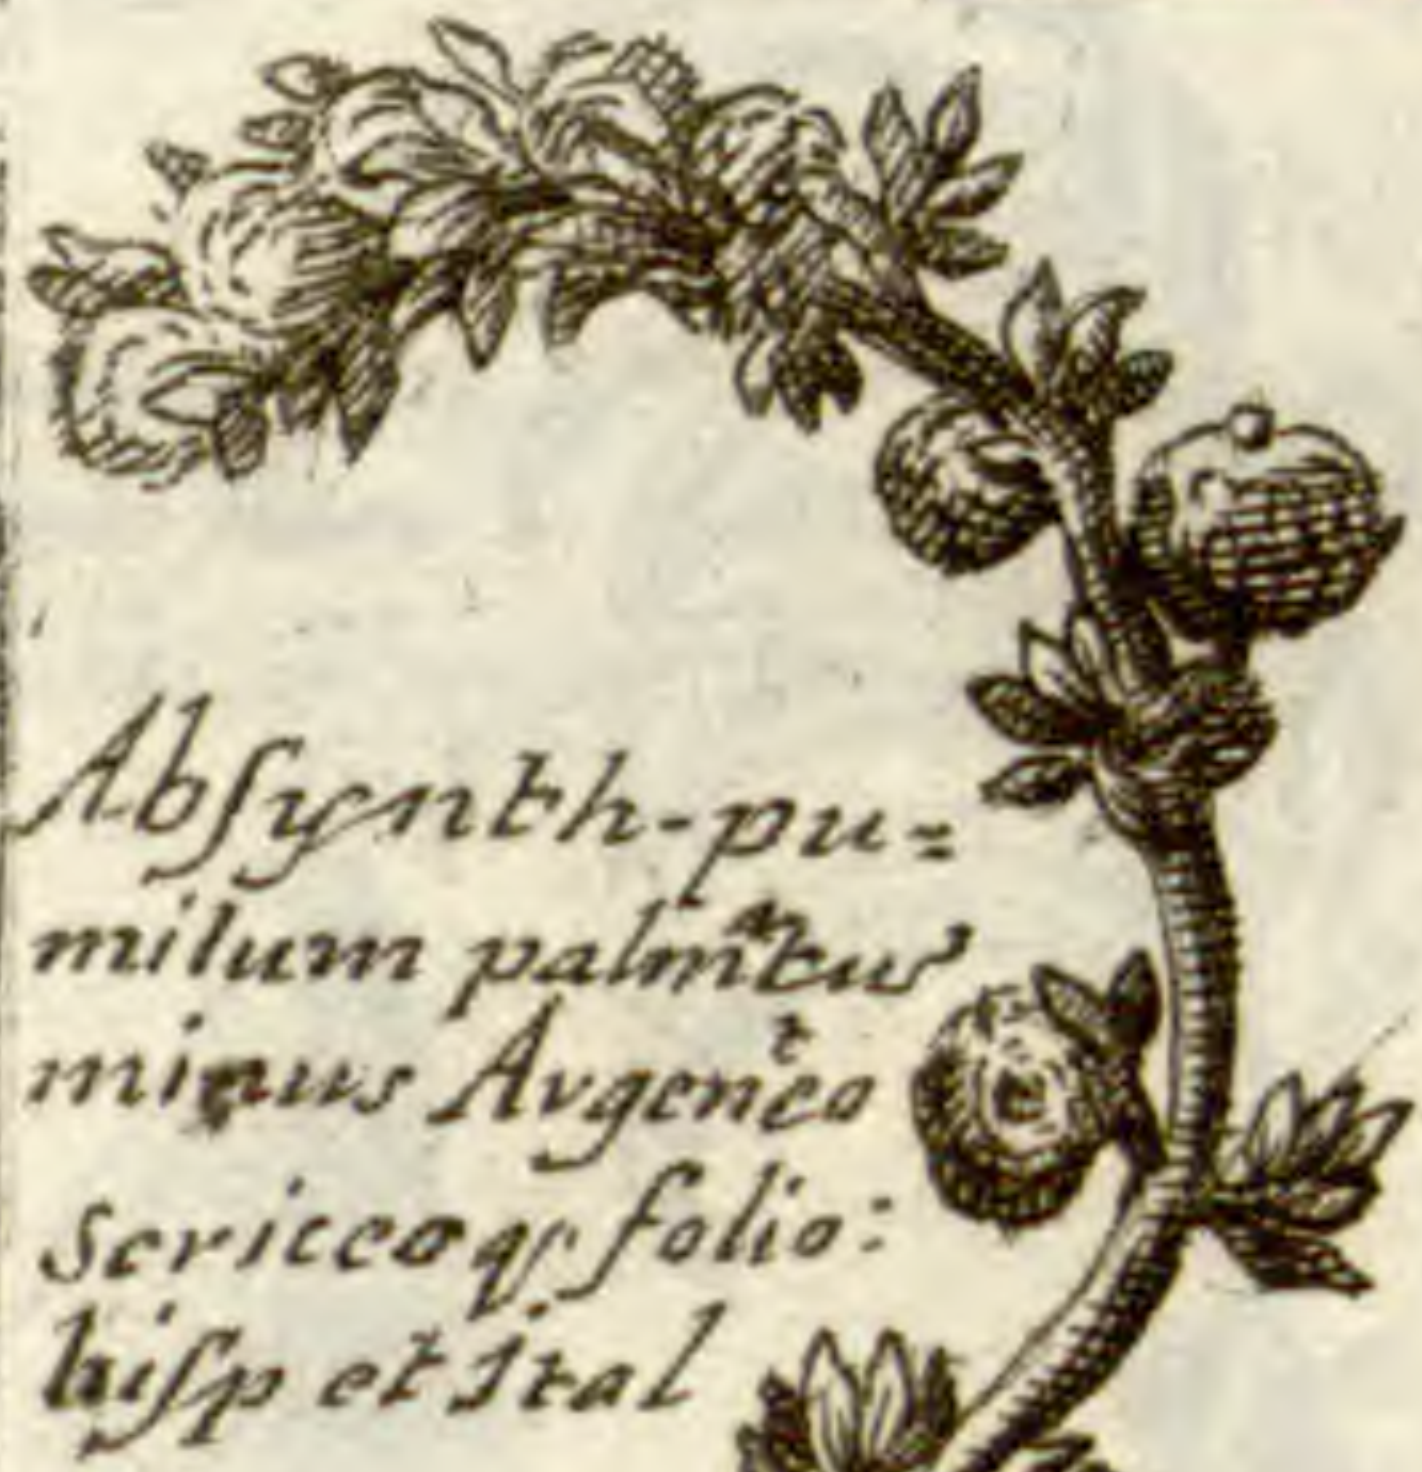 Abſynth-pu=
milum palmatum
minus Argenteo
sericeoqȝ folio:
hiſp et Ital